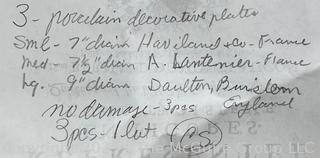 3 - porcelain decorative plates
Sml - 7" diam Haviland & Co - France
med - 7½" diam A. Lanternier - France
Lg. - 9" diam Daulton, Burslem
England
no damage - 3 pcs
3 pcs - 1 lot CS